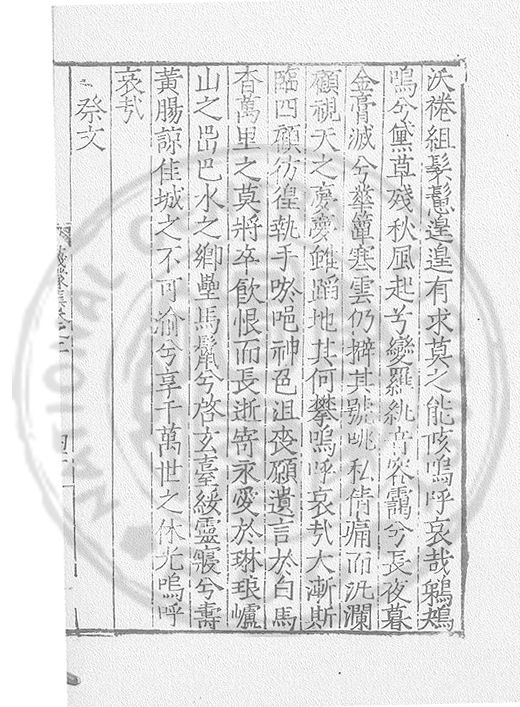 沃褖組髽鬉遑遑有求莫之能陔嗚呼哀哉鵜鴂
鳴兮黛草殘秋風起兮變羅紈音容靄兮長夜暮
金膏滅兮華簟寒雲仍擗其號咷私情痛而汍瀾
顧視天之夢夢雖蹈地其何攀嗚呼哀哉大漸斯
臨四顧彷徨執手咽唈神色沮喪顧遺言於白馬
杳萬里之莫將卒飲恨而長逝寄永愛於琳琅巘
山之岊巴水之鄉壘馬鬣兮啓玄臺綏靈寢兮壽
黃腸諒佳城之不可渝兮享千萬世之休光嗚呼
哀哉
祭文
NATIONAL CENTRAL